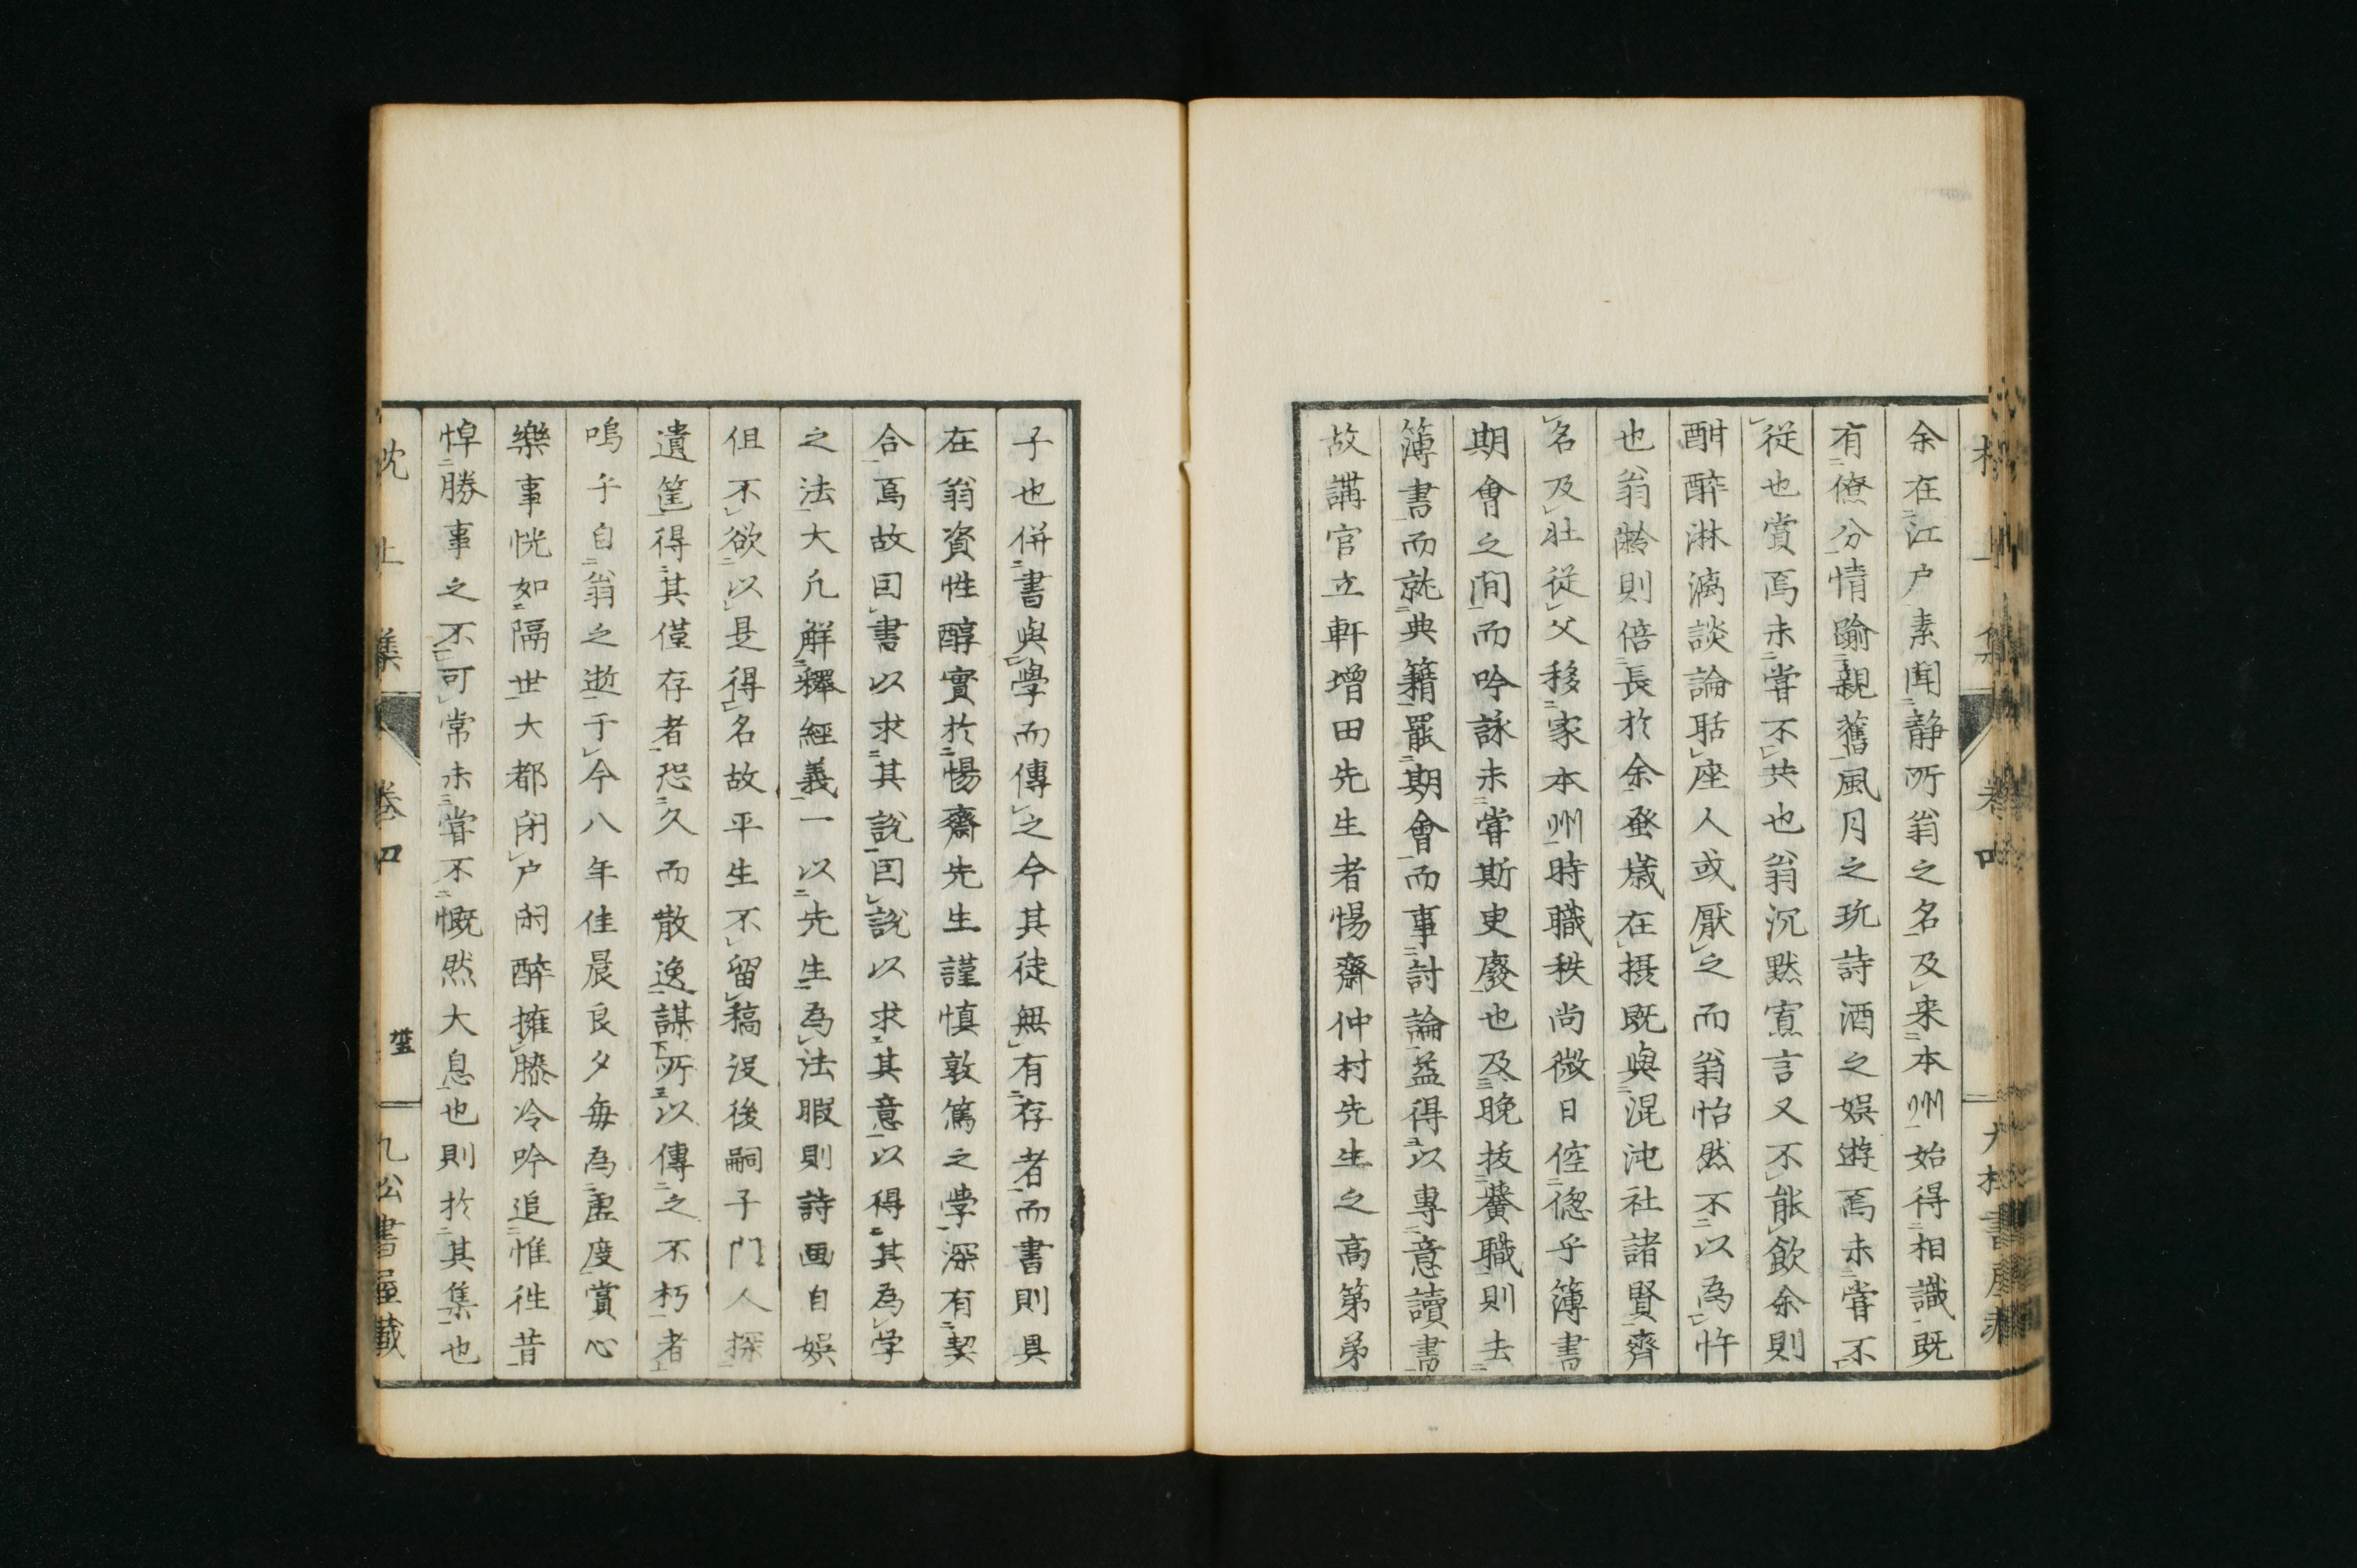 余在江户素聞静所翁之名及来本州始得相識既
有僚分情踰親舊風月之玩詩酒之娯遊焉未嘗不
従也賞焉未嘗不共也翁沉黙寡言又不能飲余則
酣醉淋漓談論聒座人或厭之而翁怡然不以為忤
也翁齡則倍長於余發歳在摂既與混沌社諸賢齊
名及壮従父移家本州時職秩尚微日倥偬乎簿書
期會之間而吟詠未嘗斯史廢也及晩抜黌職則去
簿書而就典籍罷期會而事討論益得以專意讀書
故講官立軒増田先生者惕齋仲村先生之高第弟
子也併書與學而傳之今其徒無有存者而書則具
在翁資性醇實於惕齋先生謹慎敦篤之学深有契
合焉故因書以求其説因説以求其意以得其為学
之法大凡解釋經義一以先生為法暇則詩画自娯
但不欲以是得名故平生不留稿没後嗣子門人探
遺筐得其僅存者恐久而散逸謀所以傳之不朽者
嗚乎自翁之逝于今八年佳晨良夕毎為虚度賞心
樂事恍如隔世大都閉户閑醉擁膝冷吟追惟徃昔
悼勝事之不可常未嘗不慨然大息也則於其集也
枕上集 巻四 九松書屋蔵